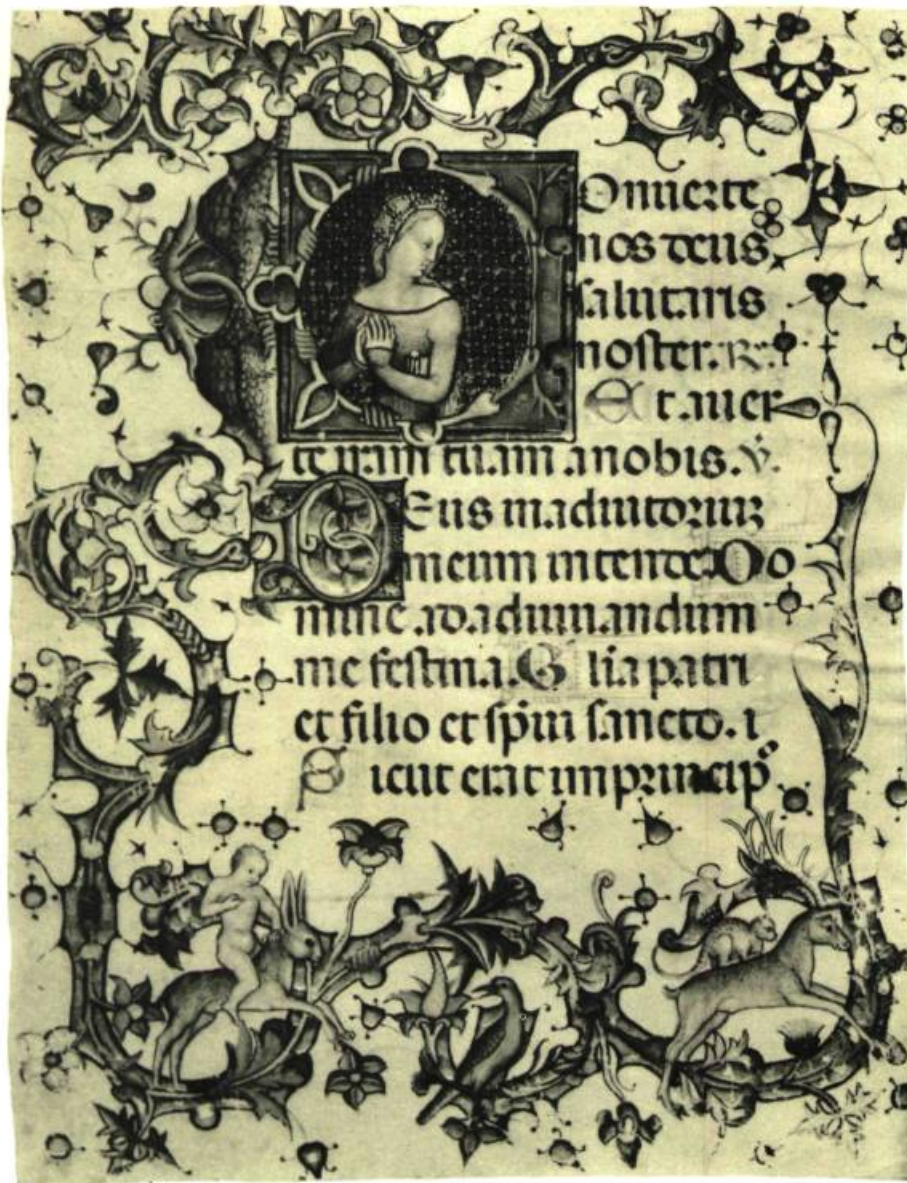 Onuerte
nos deus
salutaris
noster. R.
Et auer
te iram tuam a nobis. v.
Deus in adiutorium
meum intende. Do
mine ad adiuuandum
me festina. Glia patri
et filio et spui sancto. i
Sicut erat in princip